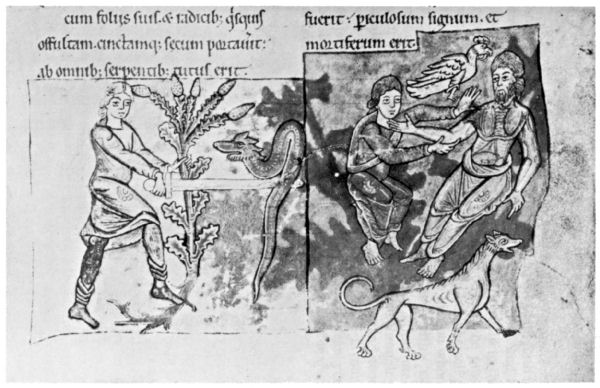 cum folijs suis. & radicib; q̃squis
offultam. cinctamq; secum portauit:
ab omnib; serpentib; tutus erit.
fuerit: piculosum signum. et
mortiferum erit.